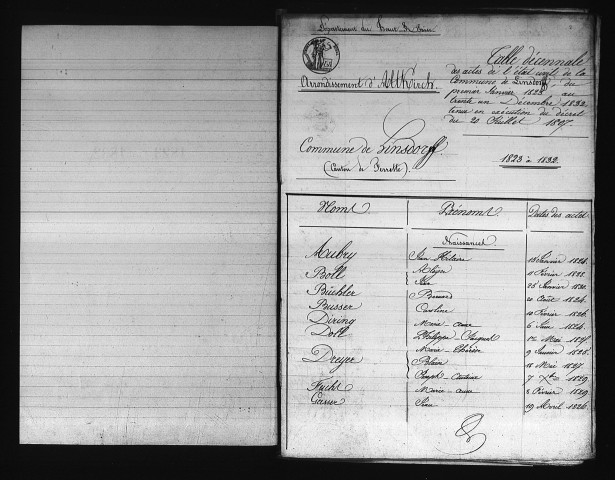 Département du Haut Rhin
Arrondissement d'Altkirch.
Commune de Linsdorff
(Canton de Ferrette).
Table décennale
des actes de l'état civil de la
Commune de Linsdorff, du
premier Janvier 1823, au
trente un Décembre 1832
tenue en exécution du décret
du 20 Juillet 1807.
1823 à 1832.
Noms. Prénoms. Dates des actes.
Naissances.
Aubry Jean Hilaire 18 Janvier
Boll 11 Février
25 Janvier 1830.
Büchler Bernard 20 Août 1824.
Busser Caroline 10 Février 1826.
Diring Marie anne 6 Juin 1824.
Doll Philippe 12 Mai
Marie Thérèse 9 Janvier
Dreyer 18 Mai
Joseph Antoine 7 Xbre 1829
Fucht Marie anne 8 Février 1829
Gasser 19 Avril 1826.